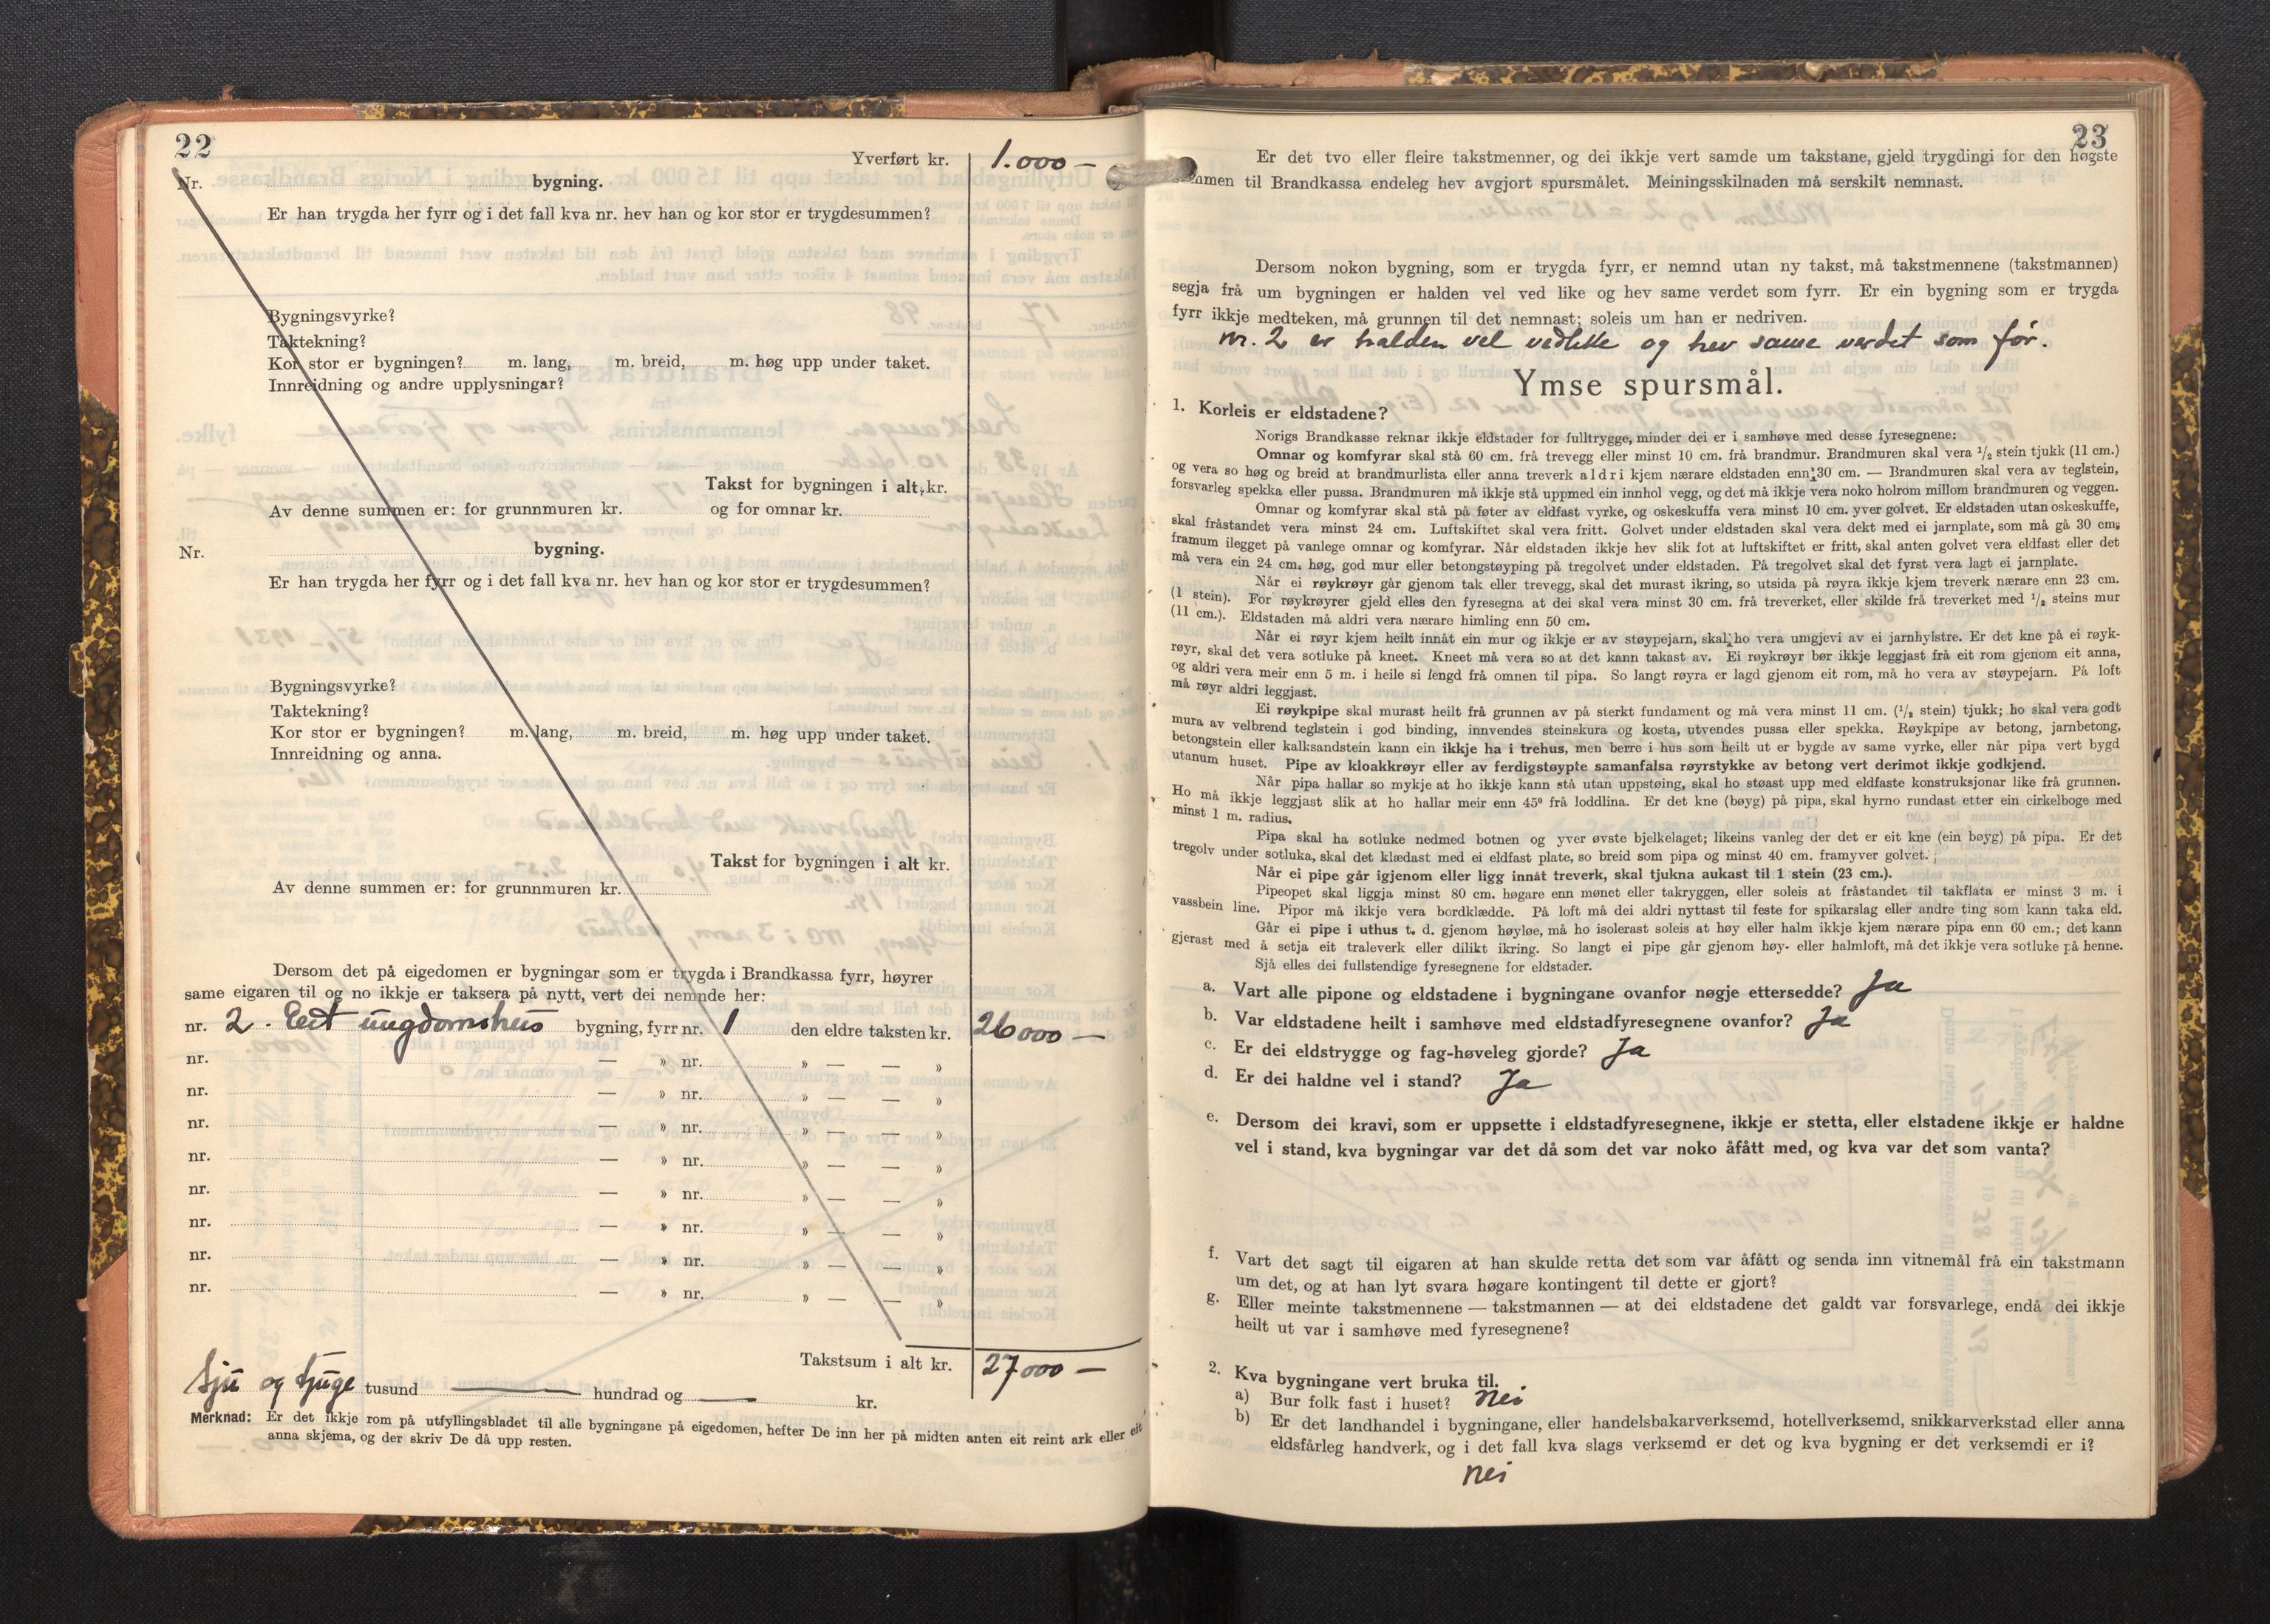 22
Yverført kr. 1.000 —
Nr. bygning.
Er han trygda her fyrr og i det fall kva nr. hev han og kor stor er trygdesummen?
Bygningsvyrke?
Taktekning?
Kor stor er bygningen? m. lang, m. breid, m. høg upp under taket.
Innreidning og andre upplysningar?
Takst for bygningen i alt, kr.
Av denne summen er: for grunnmuren kr. og for omnar kr.
Nr. bygning.
Er han trygda her fyrr og i det fall kva nr. hev han og kor stor er trygdesummen?
Bygningsvyrke?
Taktekning?
Kor stor er bygningen? m. lang, m. breid, m. høg upp under taket.
Innreidning og anna.
Takst for bygningen i alt kr.
Av denne summen er: for grunnmuren kr.
Dersom det på eigedomen er bygningar som er trygda i Brandkassa fyrr, høyrer
same eigaren til og no ikkje er taksera på nytt, vert dei nemnde her:
nr. 2. Eit ungdomshus bygning, fyrr nr. 1 den eldre taksten kr. 26000 —
nr. — » nr. » — — »
nr. — » nr. » — — »
nr. — » nr. » — — »
nr. — » nr. » — — »
nr. — » nr. » — — »
nr. — » nr. » — — »
nr. — » nr. » — — »
nr. — » nr. » — — »
Takstsum i alt kr. 27000 —
Sju og tjuge tusund — hundrad og — kr.
Merknad: Er det ikkje rom på utfyllingsbladet til alle bygningane på eigedomen, hefter De inn her på midten anten eit reint ark eller eit
anna skjema, og der skriv De då upp resten.
23
Er det tvo eller fleire takstmenner, og dei ikkje vert samde um takstane, gjeld trygdingi for den høgste
summen til Brandkassa endeleg hev avgjort spursmålet. Meiningsskilnaden må serskilt nemnast.
Dersom nokon bygning, som er trygda fyrr, er nemnd utan ny takst, må takstmennene (takstmannen)
segja frå um bygningen er halden vel ved like og hev same verdet som fyrr. Er ein bygning som er trygda
fyrr ikkje medteken, må grunnen til det nemnast; soleis um han er nedriven.
Nr. 2 er halden vel vedlike og hev same verdet som før.
Ymse spursmål.
1. Korleis er eldstadene?
Norigs Brandkasse reknar ikkje eldstader for fulltrygge, minder dei er i samhøve med desse fyresegnene:
Omnar og komfyrar skal stå 60 cm. frå trevegg eller minst 10 cm. frå brandmur. Brandmuren skal vera 1/2 stein tjukk (11 cm.)
og vera so høg og breid at brandmurlista eller anna treverk aldri kjem nærare eldstaden enn 30 cm. — Brandmuren skal vera av teglstein,
forsvarleg spekka eller pussa. Brandmuren må ikkje stå uppmed ein innhol vegg, og det må ikkje vera noko holrom millom brandmuren og veggen.
Omnar og komfyrar skal stå på føter av eldfast vyrke, og oskeskuffa vera minst 10 cm. yver golvet. Er eldstaden utan oskeskuffe,
skal fråstandet vera minst 24 cm. Luftskiftet skal vera fritt. Golvet under eldstaden skal vera dekt med ei jarnplate, som må gå 30 cm.
framum ilegget på vanlege omnar og komfyrar. Når eldstaden ikkje hev slik fot at luftskiftet er fritt, skal anten golvet vera eldfast eller det
må vera ein 24 cm. høg, god mur eller betongstøyping på tregolvet under eldstaden. På tregolvet skal det fyrst vera lagt ei jarnplate.
Når ei røykrøyr går gjenom tak eller trevegg, skal det murast ikring, so utsida på røyra ikkje kjem treverk nærare enn 23 cm.
(1 stein). For røykrøyrer gjeld elles den fyresegna at dei skal vera minst 30 cm. frå treverket, eller skilde frå treverket med 1/2 steins mur
(11 cm.). Eldstaden må aldri vera nærare himling enn 50 cm.
Når ei røyr kjem heilt innåt ein mur og ikkje er av støypejarn, skal ho vera umgjevi av ei jarnhylstre. Er det kne på ei røyk-
røyr, skal det vera sotluke på kneet. Kneet må vera so at det kann takast av. Ei røykrøyr bør ikkje leggjast frå eit rom gjenom eit anna,
og aldri vera meir enn 5 m. i heile si lengd frå omnen til pipa. So langt røyra er lagd gjenom eit rom, må ho vera av støypejarn. På loft
må røyr aldri leggjast.
Ei røykpipe skal murast heilt frå grunnen av på sterkt fundament og må vera minst 11 cm. (1/2 stein) tjukk; ho skal vera godt
mura av velbrend teglstein i god binding, innvendes steinskura og kosta, utvendes pussa eller spekka. Røykpipe av betong, jarnbetong,
betongstein eller kalksandstein kann ein ikkje ha i trehus, men berre i hus som heilt ut er bygde av same vyrke, eller når pipa vert bygd
utanum huset. Pipe av kloakkrøyr eller av ferdigstøypte samanfalsa røyrstykke av betong vert derimot ikkje godkjend.
Når pipa hallar so mykje at ho ikkje kann stå utan uppstøing, skal ho støast upp med eldfaste konstruksjonar like frå grunnen.
Ho må ikkje leggjast slik at ho hallar meir enn 45° frå loddlina. Er det kne (bøyg) på pipa, skal hyrno rundast etter ein cirkelboge med
minst 1 m. radius.
Pipa skal ha sotluke nedmed botnen og yver øvste bjelkelaget; likeins vanleg der det er eit kne (ein bøyg) på pipa. Er det
tregolv under sotluka, skal det klædast med ei eldfast plate, so breid som pipa og minst 40 cm. framyver golvet.
Når ei pipe går igjenom eller ligg innåt treverk, skal tjukna aukast til 1 stein (23 cm.).
Pipeopet skal liggja minst 80 cm. høgare enn mønet eller takryggen, eller soleis at fråstandet til takflata er minst 3 m. i
vassbein line. Pipor må ikkje vera bordklædde. På loft må dei aldri nyttast til feste for spikarslag eller andre ting som kann taka eld.
Går ei pipe i uthus t. d. gjenom høyløe, må ho isolerast soleis at høy eller halm ikkje kjem nærare pipa enn 60 cm.; det kann
gjerast med å setja eit traleverk eller dilikt ikring. So langt ei pipe går gjenom høy- eller halmloft, må det ikkje vera sotluke på henne.
Sjå elles dei fullstendige fyresegnene for eldstader.
a. Vart alle pipone og eldstadene i bygningane ovanfor nøgje ettersedde? Ja
b. Var eldstadene heilt i samhøve med eldstadfyresegnene ovanfor? Ja
c. Er dei eldstrygge og fag-høveleg gjorde? Ja
d. Er dei haldne vel i stand? Ja
e. Dersom dei kravi, som er uppsette i eldstadfyresegnene, ikkje er stetta, eller elstadene ikkje er haldne
vel i stand, kva bygningar var det då som det var noko åfått med, og kva var det som vanta?
f. Vart det sagt til eigaren at han skulde retta det som var åfått og senda inn vitnemål frå ein takstmann
um det, og at han lyt svara høgare kontingent til dette er gjort?
g. Eller meinte takstmennene — takstmannen — at dei eldstadene det galdt var forsvarlege, endå dei ikkje
heilt ut var i samhøve med fyresegnene?
2. Kva bygningane vert bruka til.
a) Bur folk fast i huset? Nei
b) Er det landhandel i bygningane, eller handelsbakarverksemd, hotellverksemd, snikkarverkstad eller anna
eldsfårleg handverk, og i det fall kva slags verksemd er det og kva bygning er det verksemdi er i?
Nei